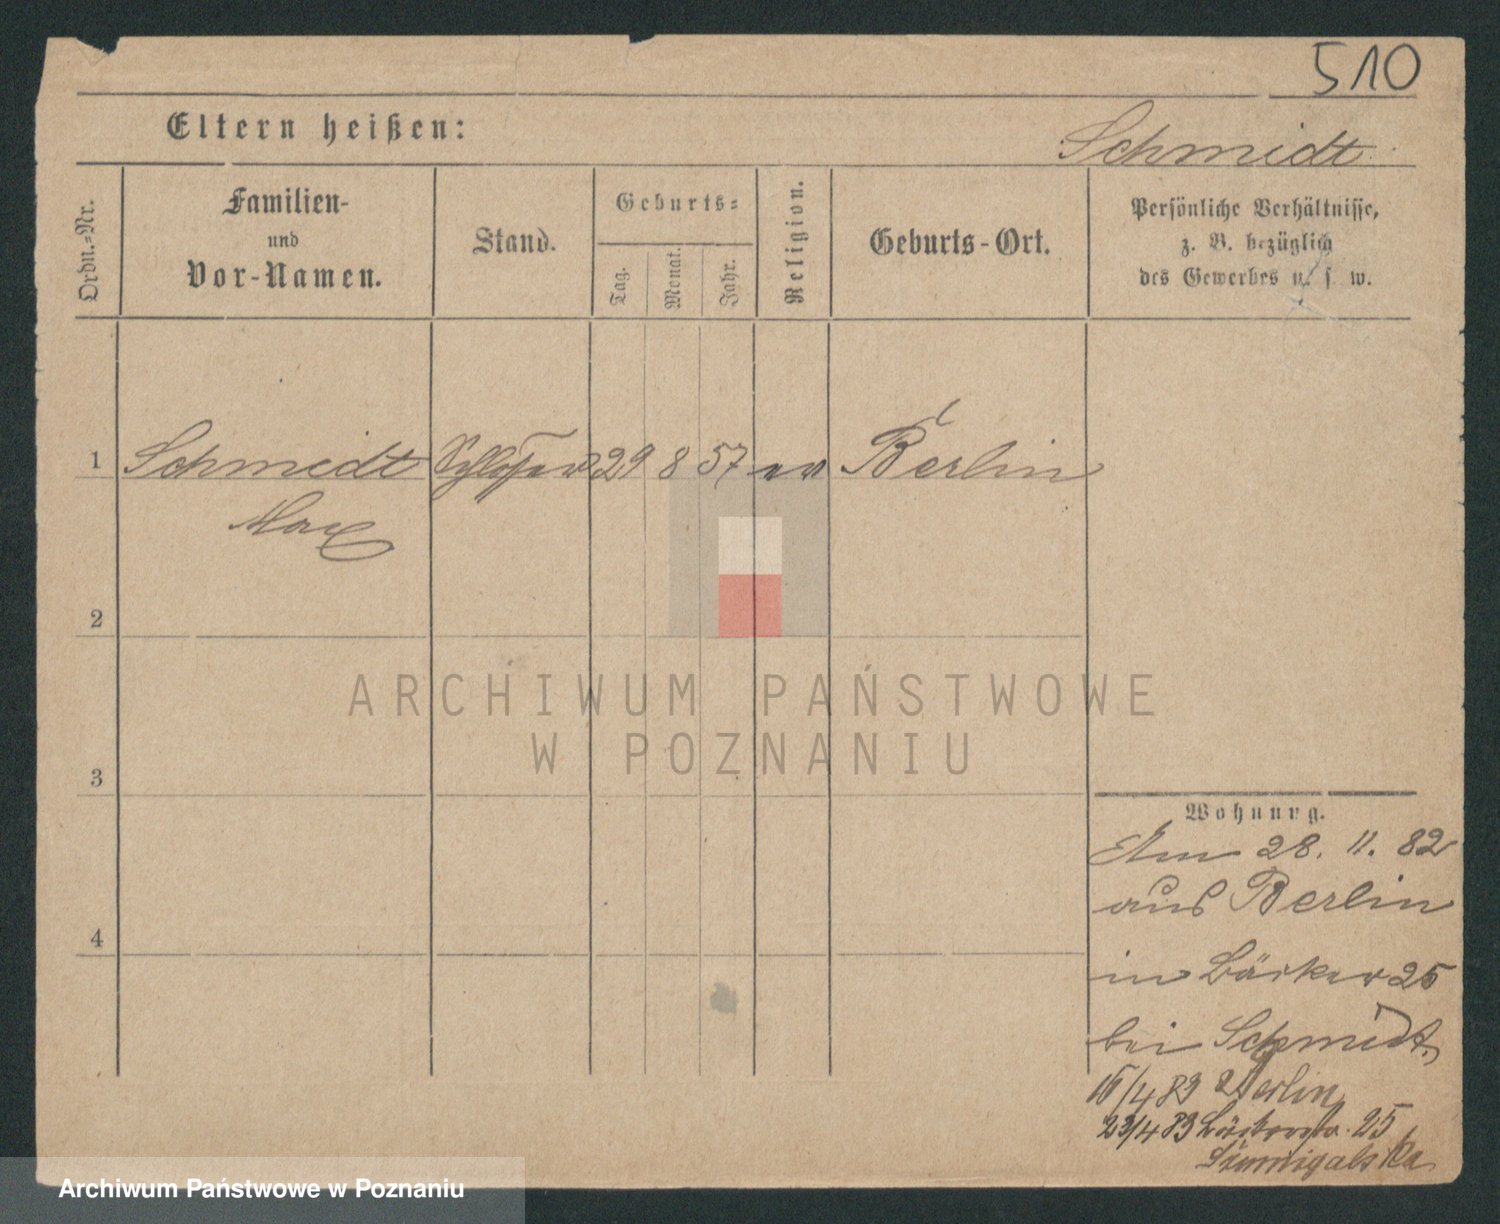 510
Eltern heißen:
Schmidt
Ordn.-Nr.
Familien-
und
Vor-Namen.
Stand.
Geburts-
Tag.
Monat.
Jahr.
Religion.
Geburts-Ort.
Persönliche Verhältnisse,
z. B. bezüglich
des Gewerbes u. s. w.
1 Schmidt Schlosser 29 8 57 ev Berlin
Max
2
ARCHIWUM PAŃSTWOWE
W POZNANIU
3
Wohnung.
Am 28. 11. 82
aus Berlin
in Bäcker 25
4
bei Schmidt
15/4 83 Berlin
23/4 83 Bäckerstr. 25
Archiwum Państwowe w Poznaniu